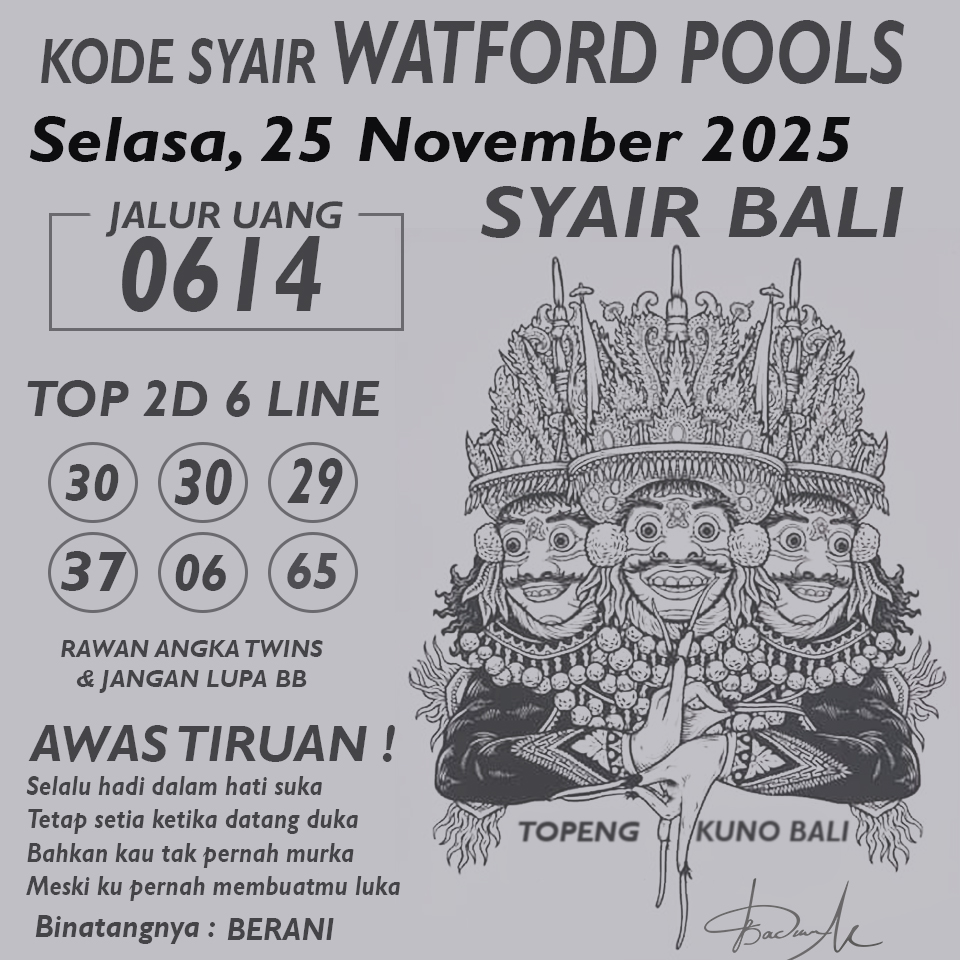 KODE SYAIR WATFORD POOLS
Selasa, 25 November 2025
SYAIR BALI
JALUR UANG
0614
TOP 2D 6 LINE
30 30 29
37 06 65
RAWAN ANGKA TWINS
& JANGAN LUPA BB
AWAS TIRUAN !
Selalu hadi dalam hati suka
Tetap setia ketika datang duka
Bahkan kau tak pernah murka
Meski ku pernah membuatmu luka
Binatangnya : BERANI
TOPENG KUNO BALI